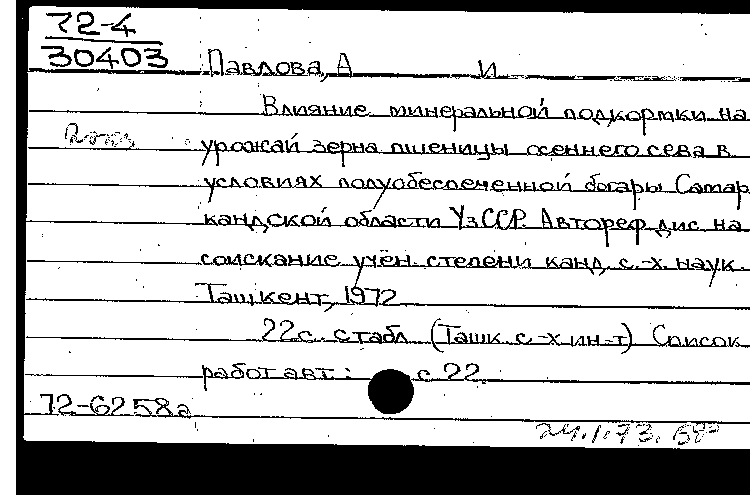 72-4
30403
Павлова, А И
Влияние минеральной подкормки на
урожай зерна пшеницы осеннего сева в
условиях полуобеспеченной богары Самар
кандской области УзССР. Автореф дис на
соискание учён. степени канд. с.-х. наук.
Ташкент, 1972
22с. с табл. (Ташк. с-х ин-т) Список
работ авт: с 22.
72-6258а
24.1.73.